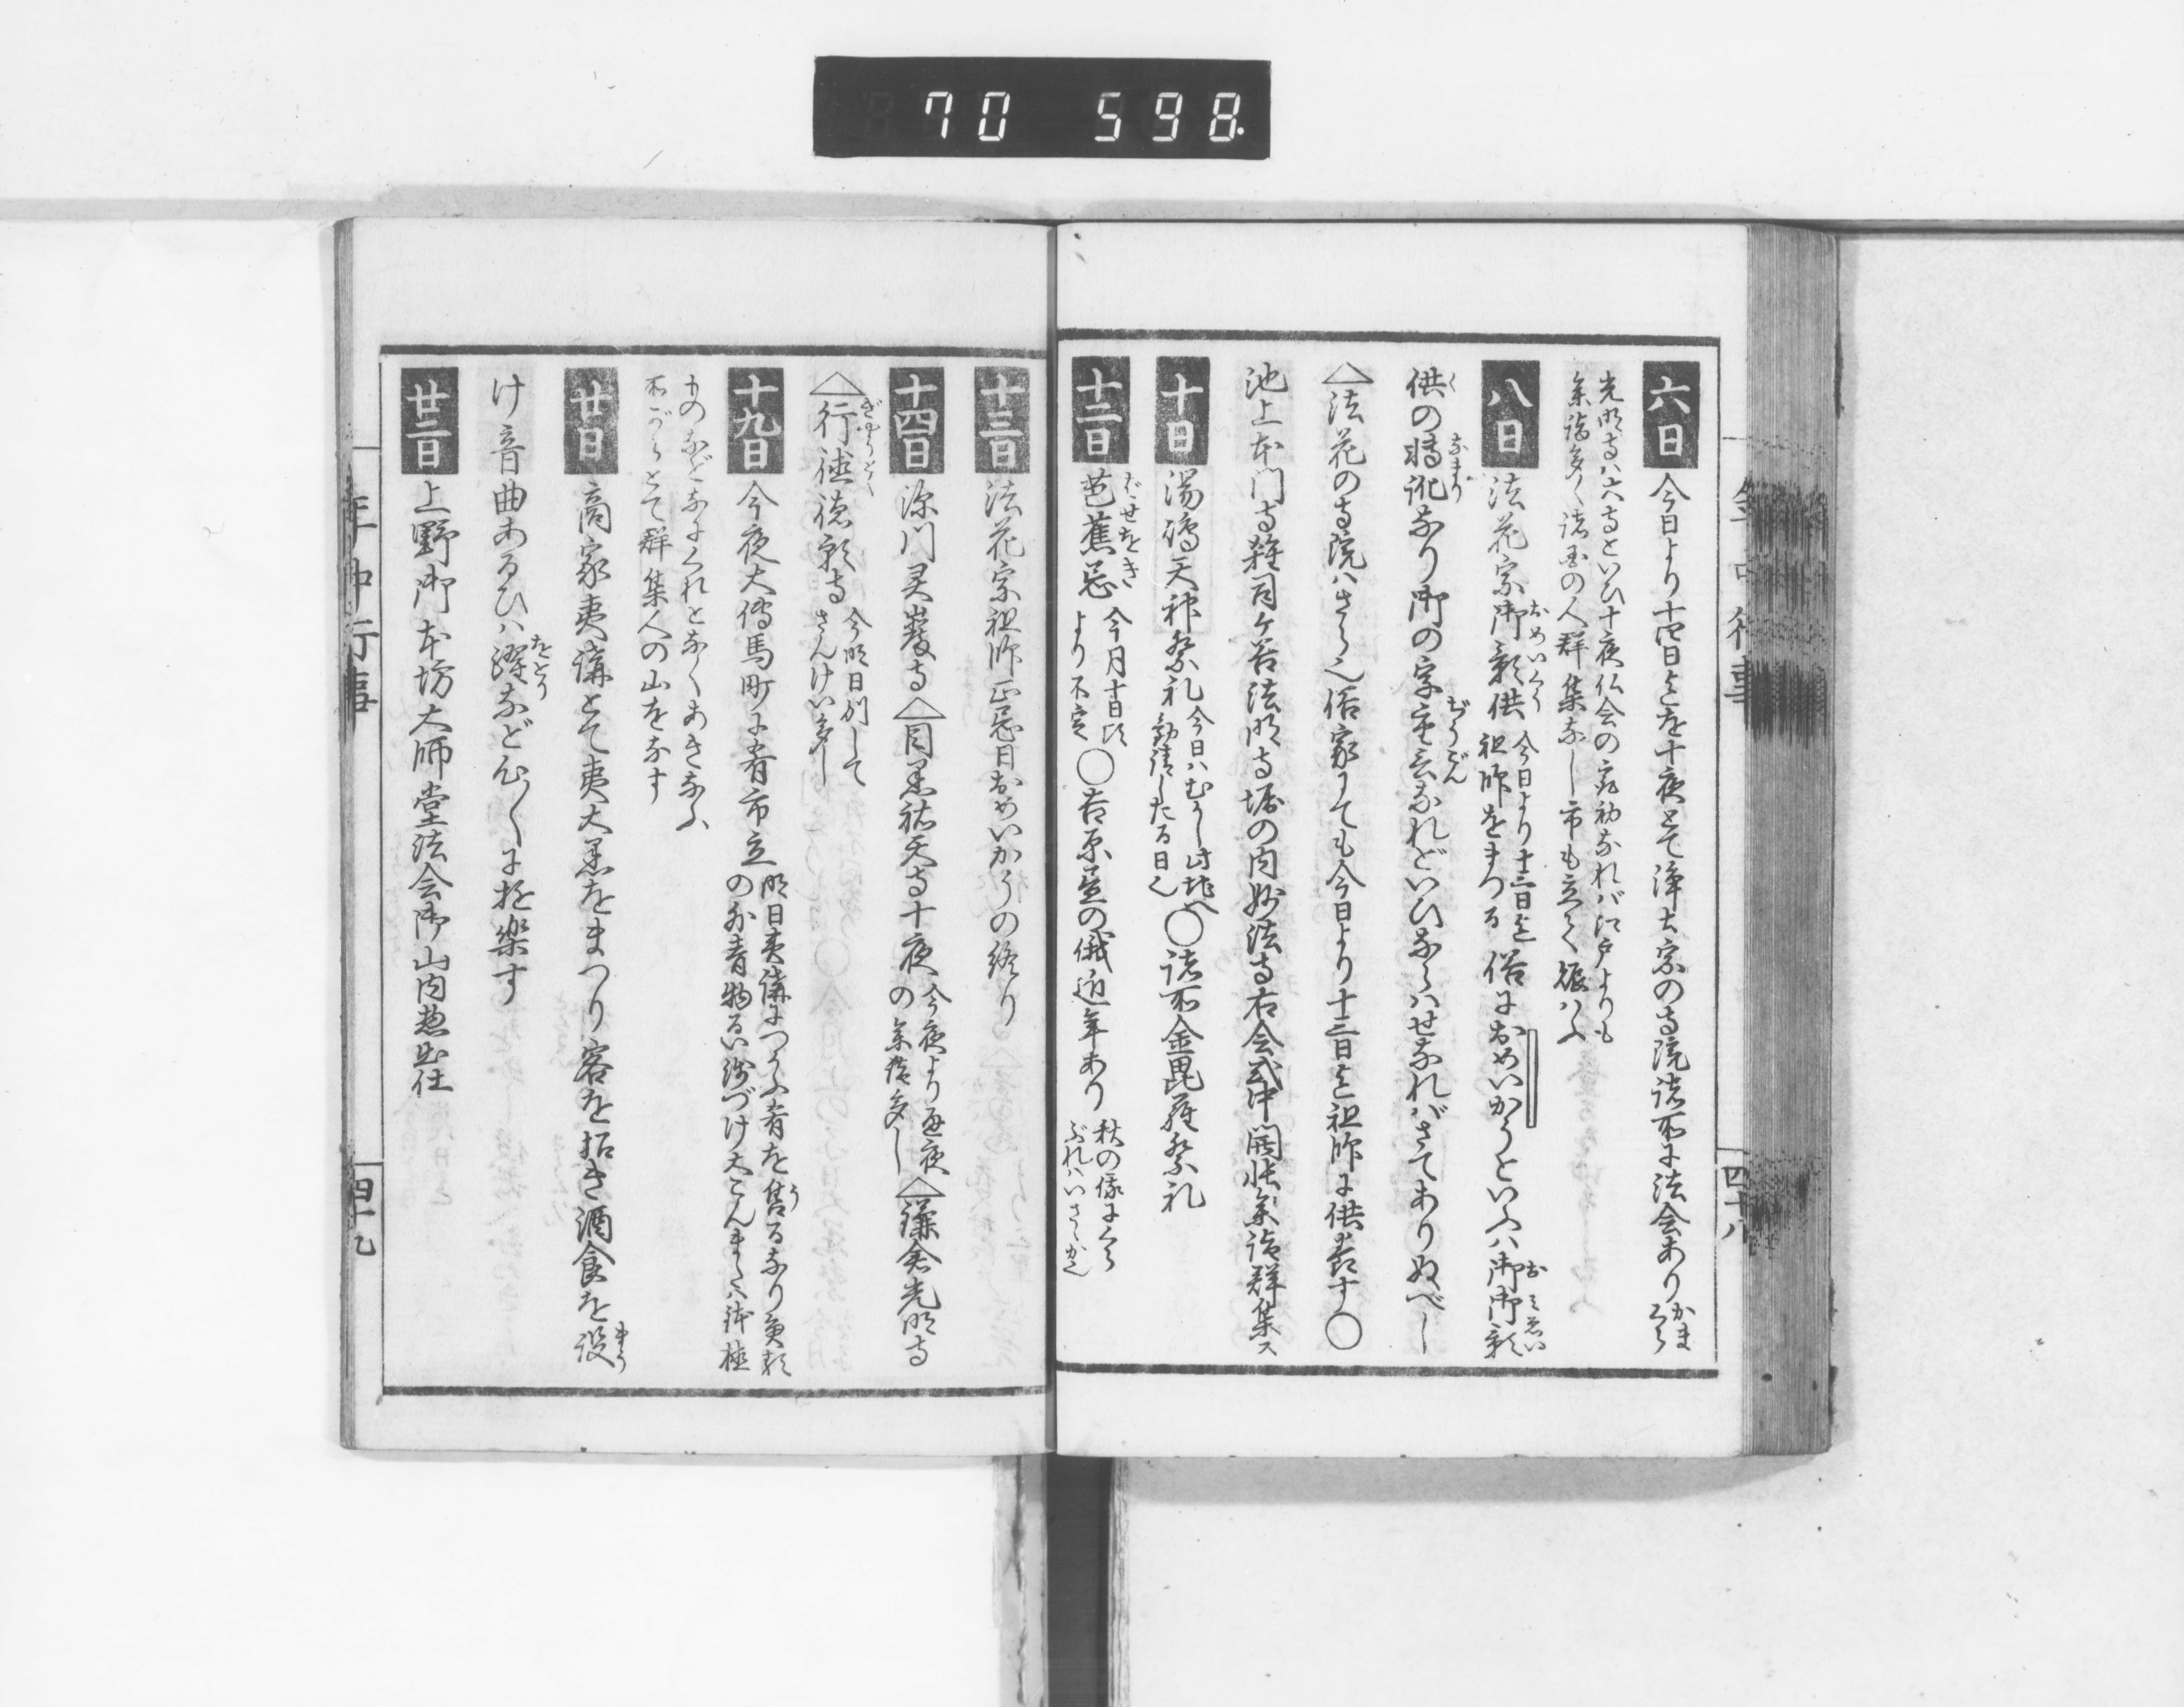 70 598.
年中行事
四十八
六日 今日より十四日迄を十夜とて浄土宗の寺院諸所に法会あり かまくら
光明寺ハ六寺といひ十夜仏会の最初なれバ江戸よりも
参詣多く諸国の人群集なし市も立て賑ハふ
八日 法花宗御影供 おめいく 今日より十三日迄
祖師をまつる 俗におめいかうといふハ御御影 おミゑい
供 く の転訛 なまり なり御の字重言 ぢうごん なれどいひならハせなればさてありぬべし
△法花の寺院ハさら也俗家にても今日より十三日迄祖師に供養す〇
池上本門寺雑司ケ谷法明寺堀の内妙法寺右会式中開帳参詣群集ス
十日 湯嶋天神祭礼 今日ハむかし此地へ
勧請したる日也 〇諸所金毘羅祭礼
十二日 芭蕉忌 ばせをき 今月十日頃
より不定 〇吉原星の俄近年あり 秋の俄にくら
ぶれバいさゝか也
十三日 法花宗祖師正忌日おめいかうの終り
十四日 深川灵巌寺△目黒祐天寺十夜 今夜より通夜
の参詣多し △鎌倉光明寺
△行徳 ぎやうとく 徳願寺 今明日別して
さんけい多し
十九日 今夜大傳馬町に肴市立 明日夷講につかふ肴を售 う るなり魚類
の外青物るい浅づけ大こんまた八鉢植
ものなどなにくれとなくあきなふ
所がらとて群集人の山をなす
廿日 商家夷講とて夷大黒をまつり客を招き酒食を設 まう
け音曲あるひハ躍 をどり など心〳〵に遊楽す
廿二日 上野御本坊大師堂法会御山内惣出仕
年中行事
四十九